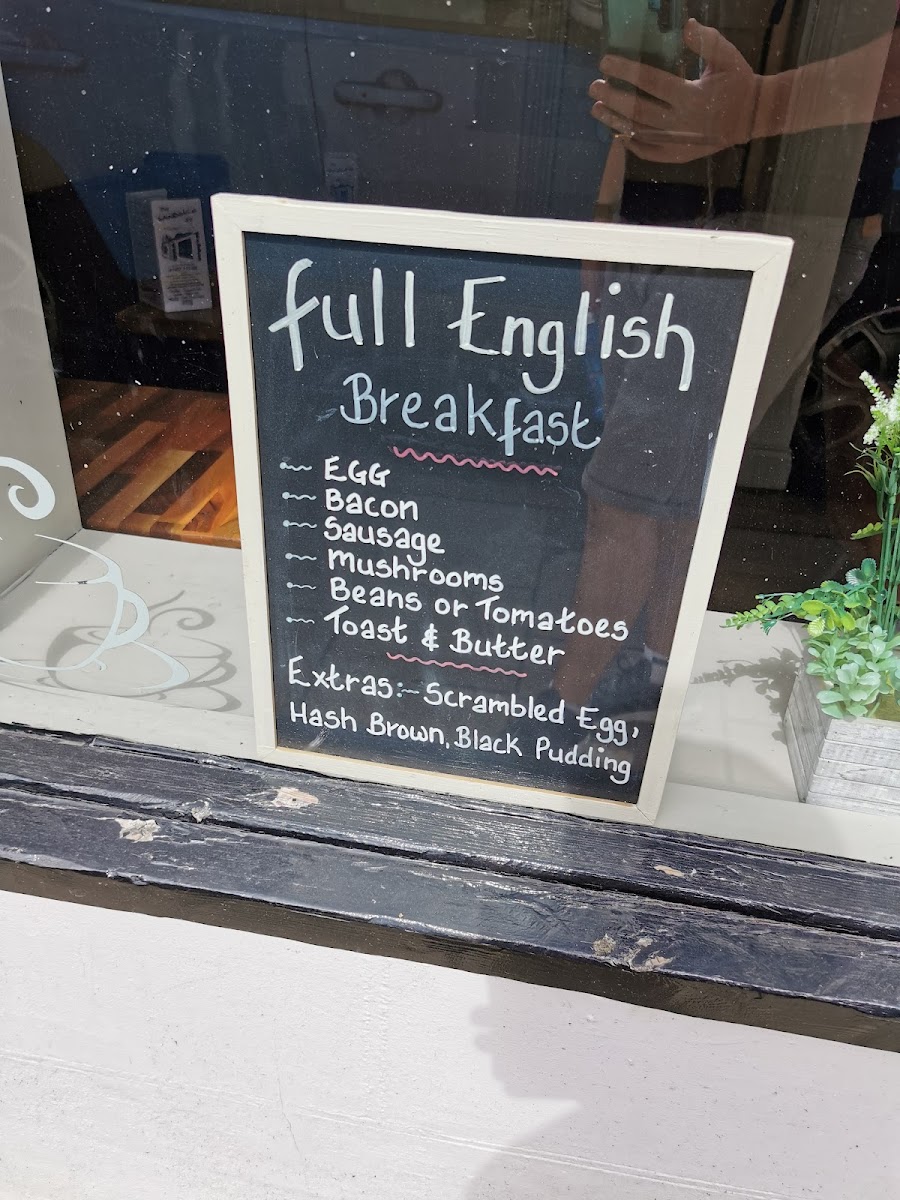 full English
Breakfast
EGG
Bacon
Sausage
Mushrooms
Beans or Tomatoes
Toast & Butter
Extras:- Scrambled Egg,
Hash Brown, Black Pudding